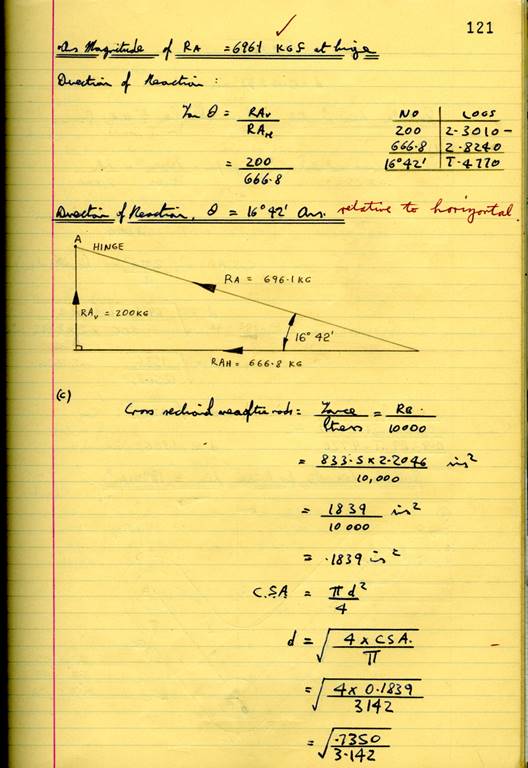 121
Ans Magnitude of RA = 6961 KGS at hinge
Direction of Reaction :
Tan θ = RAv / RAH
= 200 / 666.8
NO LOGS
200 2.3010 -
666.8 2.8240
16°42' T.4770
Direction of Reaction, θ = 16°42' Ans. relative to horizontal.
A HINGE
RA = 696.1KG
RAv = 200KG
16° 42'
RAH = 666.8 KG
(c)
Cross sectional area of tie rods = Force / Stress = RB. / 10000
= 833.5 x 2.2046 / 10,000 ins²
= 1839 / 10000 ins²
= .1839 ins²
C.S.A = πd² / 4
d = √ 4 x CSA. / π
= √ 4 x 0.1839 / 3142
= √ .7350 / 3.142